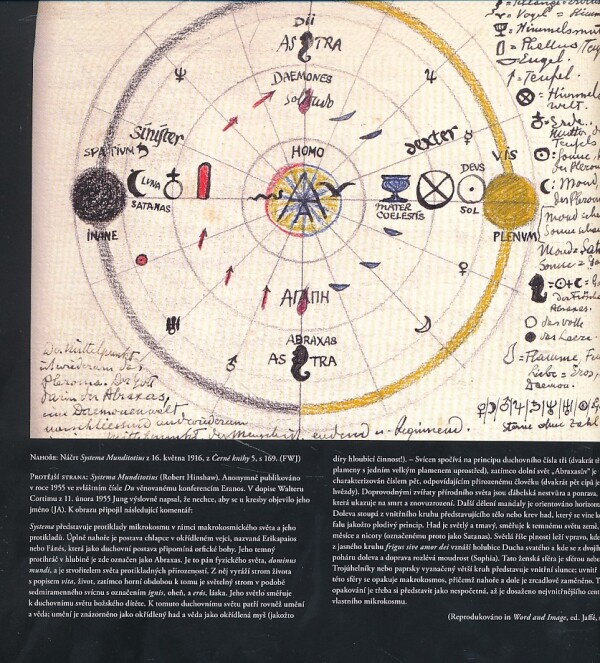 DII
AS TRA
DAEMONES
solitudo
sinister
SPATIUM
LUNA
SATANAS
INANE
HOMO
dexter
MATER
COELESTIS
DEUS
SOL
VIS
PLENUM
ΑΓΑΠΗ
ABRAXAS
AS TRA
= Vogel =
= Himmels
= Phallus, Teu
= Engel.
= Teufel.
= Himmels
welt.
= Erde,
Mutter des
= Sonne,
des Pleroma
= Mond,
des Pleroma
Abraxas.
das volle
das leere
= Flamme,
Liebe = Eros,
Daemon.
Sterne ohne Zahl
Der Mittelpunkt
ist wiederum das
Pleroma. Der Gott
darin ist Abraxas,
eine Daemonenwelt
umschliesst und wiederum
Nahoře: Náčrt Systema Munditotius z 16. května 1916, z Černé knihy 5, s 169. (FWJ)
Protější strana: Systema Munditotius (Robert Hinshaw). Anonymně publikováno
v roce 1955 ve zvláštním čísle Du věnovanému konferencím Eranos. V dopise Walteru
Cortimu z 11. února 1955 Jung výslovně napsal, že nechce, aby se u kresby objevilo jeho
jméno (JA). K obrazu připojil následující komentář:
Systema představuje protiklady mikrokosmu v rámci makrokosmického světa a jeho
protikladů. Úplně nahoře je postava chlapce v okřídleném vejci, nazvaná Erikapaios
nebo Fánés, která jako duchovní postava připomíná orfické bohy. Jeho temný
protihráč v hlubině je zde označen jako Abraxas. Je to pán fyzického světa, dominus
mundi, a je stvořitelem světa protikladných přirozeností. Z něj vyráží strom života
s popisem vita, život, zatímco horní obdobou k tomu je světelný strom v podobě
sedmiramenného svícnu s označením ignis, oheň, a erós, láska. Jeho světlo směřuje
k duchovnímu světu božského dítěte. K tomuto duchovnímu světu patří rovněž umění
a věda; umění je znázorněno jako okřídlený had a věda jako okřídlená myš (jakožto
díry hloubící činnost!). – Svícen spočívá na principu duchovního čísla tří (dvakrát tř
plameny s jedním velkým plamenem uprostřed), zatímco dolní svět „Abraxasův“ je
charakterizován číslem pět, odpovídajícím přirozenému člověku (dvakrát pět cípů je
hvězdy). Doprovodnými zvířaty přírodního světa jsou ďábelská nestvůra a ponrava,
která ukazuje na smrt a znovuzrození. Další dělení mandaly je orientováno horizont
Doleva stoupá z vnitřního kruhu představujícího tělo nebo krev had, který se vine k
falu jakožto plodivý princip. Had je světlý a tmavý, směřuje k temnému světu země,
měsíce a nicoty (označenému proto jako Satanas). Světlá říše plnosti leží vpravo, kde
z jasného kruhu frigus sive amor dei vznáší holubice Ducha svatého a kde se z dvojí
poháru doleva a doprava rozlévá moudrost (Sophia). Tato ženská sféra je sférou nebe
Trojúhelníky nebo paprsky vyznačený větší kruh představuje vnitřní slunce; uvnitř
této sféry se opakuje makrokosmos, přičemž nahoře a dole je zrcadlově zaměněn. T
opakování je třeba si představit jako nespočetná, až je dosaženo nejvnitřnějšího cent
vlastního mikrokosmu.
(Reprodukováno in Word and Image, ed. Jaffé,